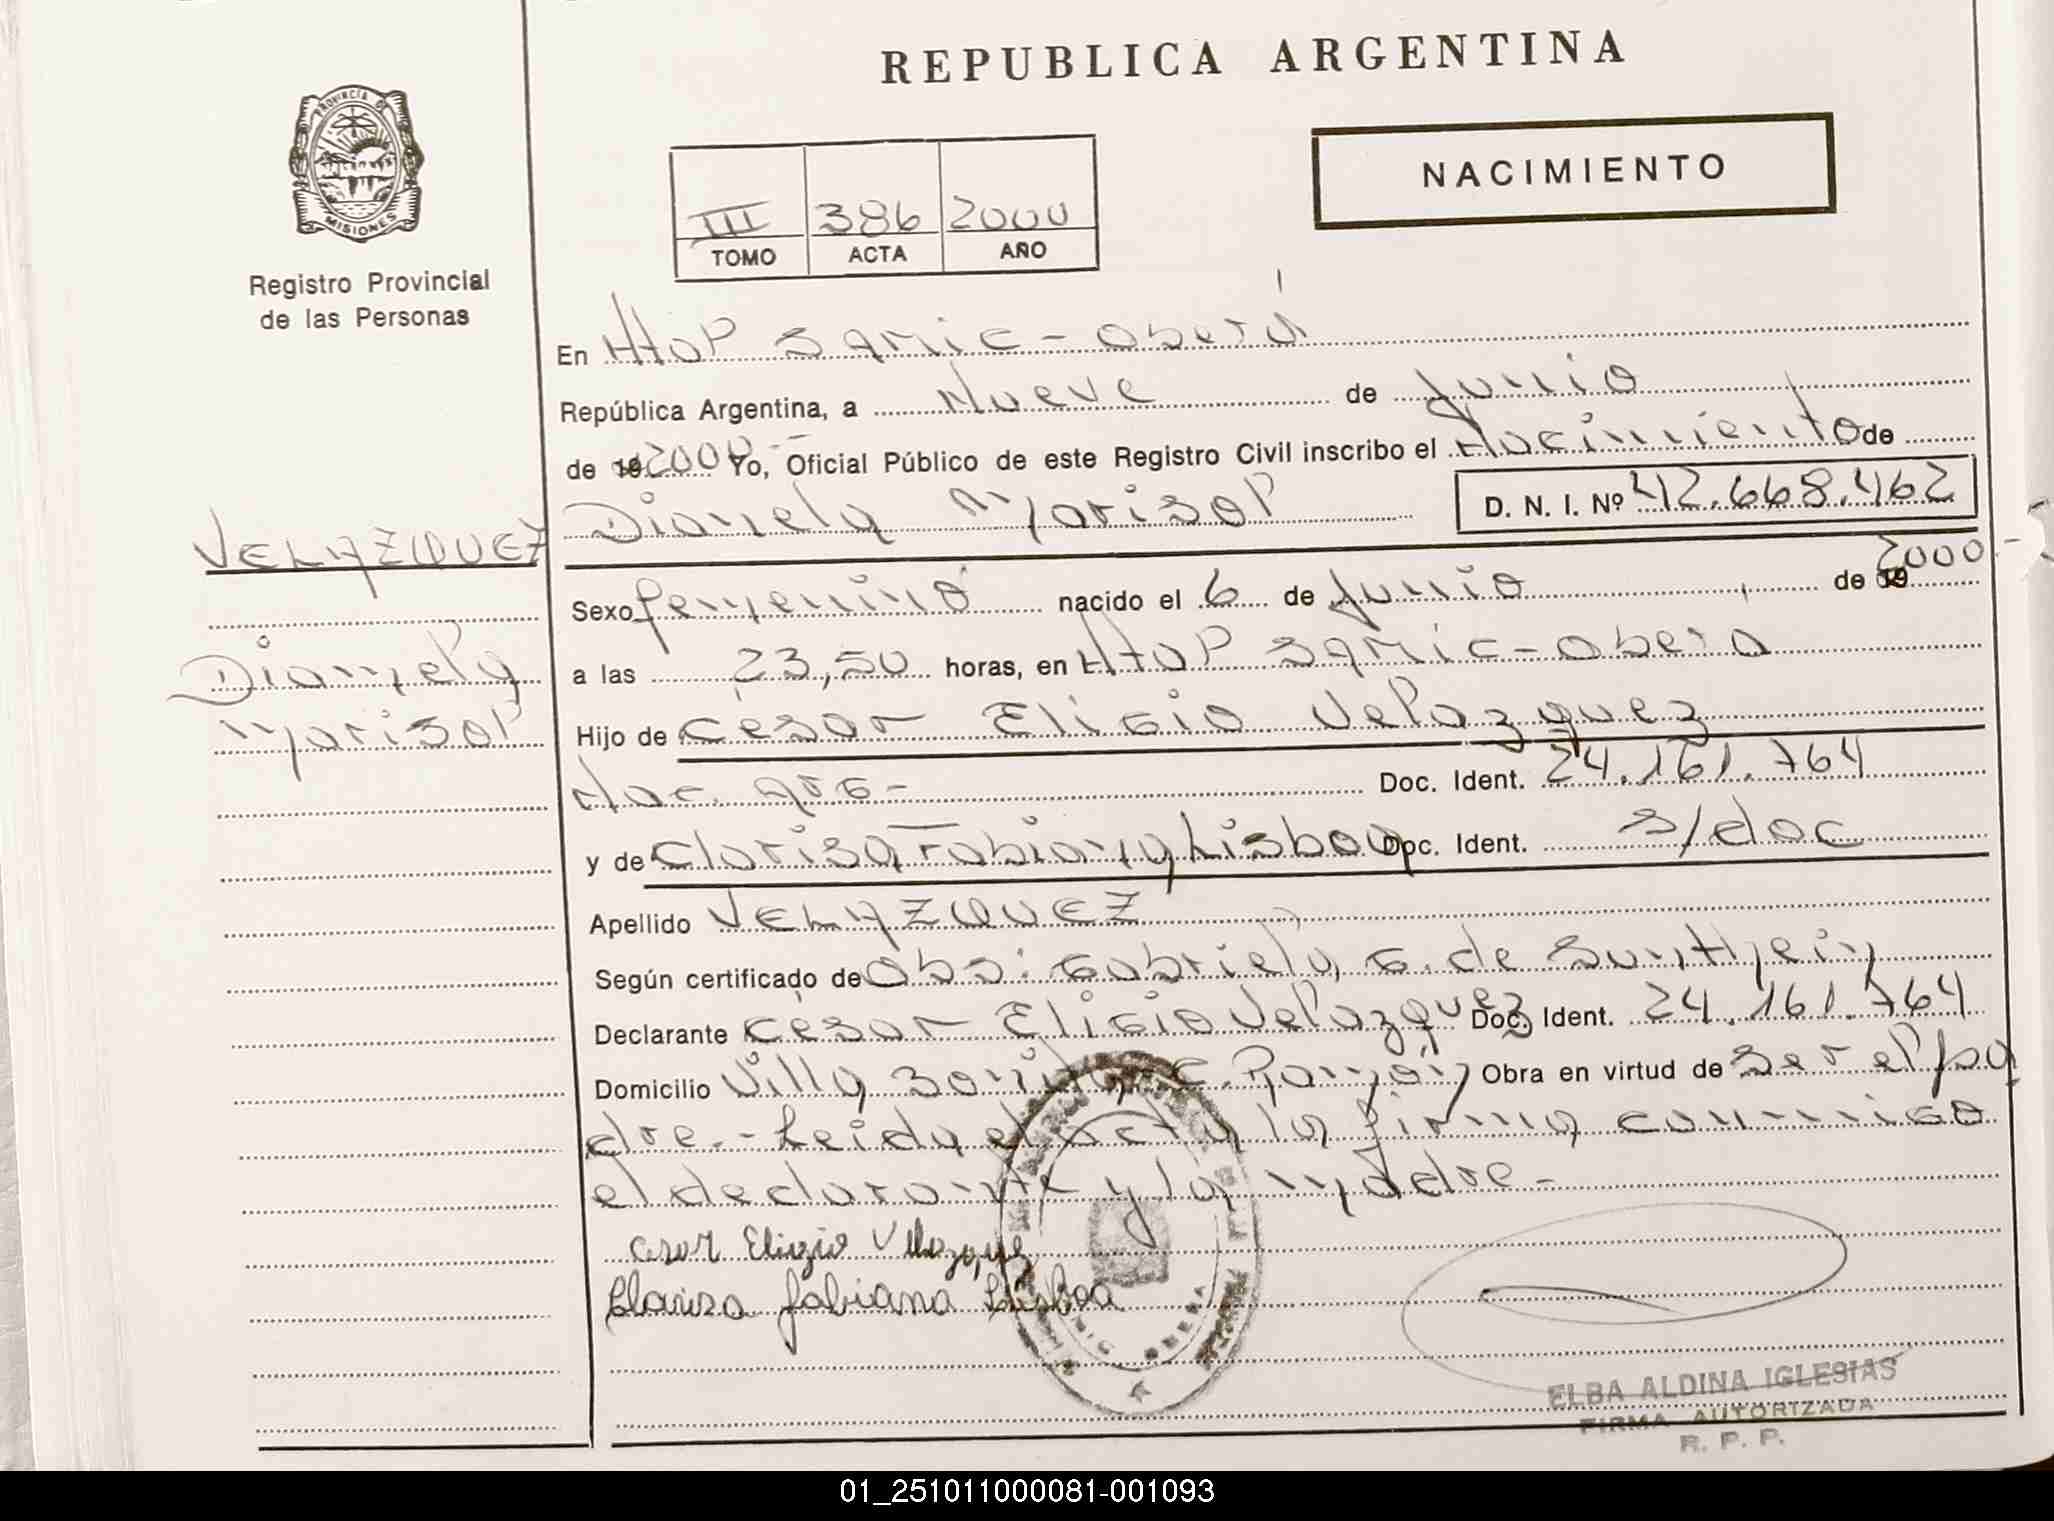 REPUBLICA ARGENTINA
NACIMIENTO
PROVINCIA DE
MISIONES
Registro Provincial
de las Personas
III 386 2000
TOMO ACTA AÑO
En Htop Samic - Oberá
República Argentina, a Nueve de Junio
de 19 2000 Yo, Oficial Público de este Registro Civil inscribo el Nacimiento de
Dianela Marisol D. N. I. Nº 42.668.462
VELAZQUEZ
Dianela
Marisol
Sexo femenino nacido el 6 de Junio de 19 2000.-
a las 23,50 horas, en Htop Samic - Obera
Hijo de Cesar Eligio Velazquez
Nac. arg - Doc. Ident. 24.161.764
y de Clarisa Fabiana Lisboa Doc. Ident. s/doc
Apellido VELAZQUEZ
Según certificado de Obs: Gabriela G. de
Declarante Cesar Eligio Velazquez Doc. Ident. 24.161.764
Domicilio Villa C. Ramón Obra en virtud de ser el pa
dre.- Leida el acta la firma conmigo
el declarante y la madre.-
Cesar Eligio Velazquez
Clarisa Fabiana Lisboa
OBERA
ELBA ALDINA IGLESIAS
FIRMA AUTORIZADA
R. P. P.
01_251011000081-001093